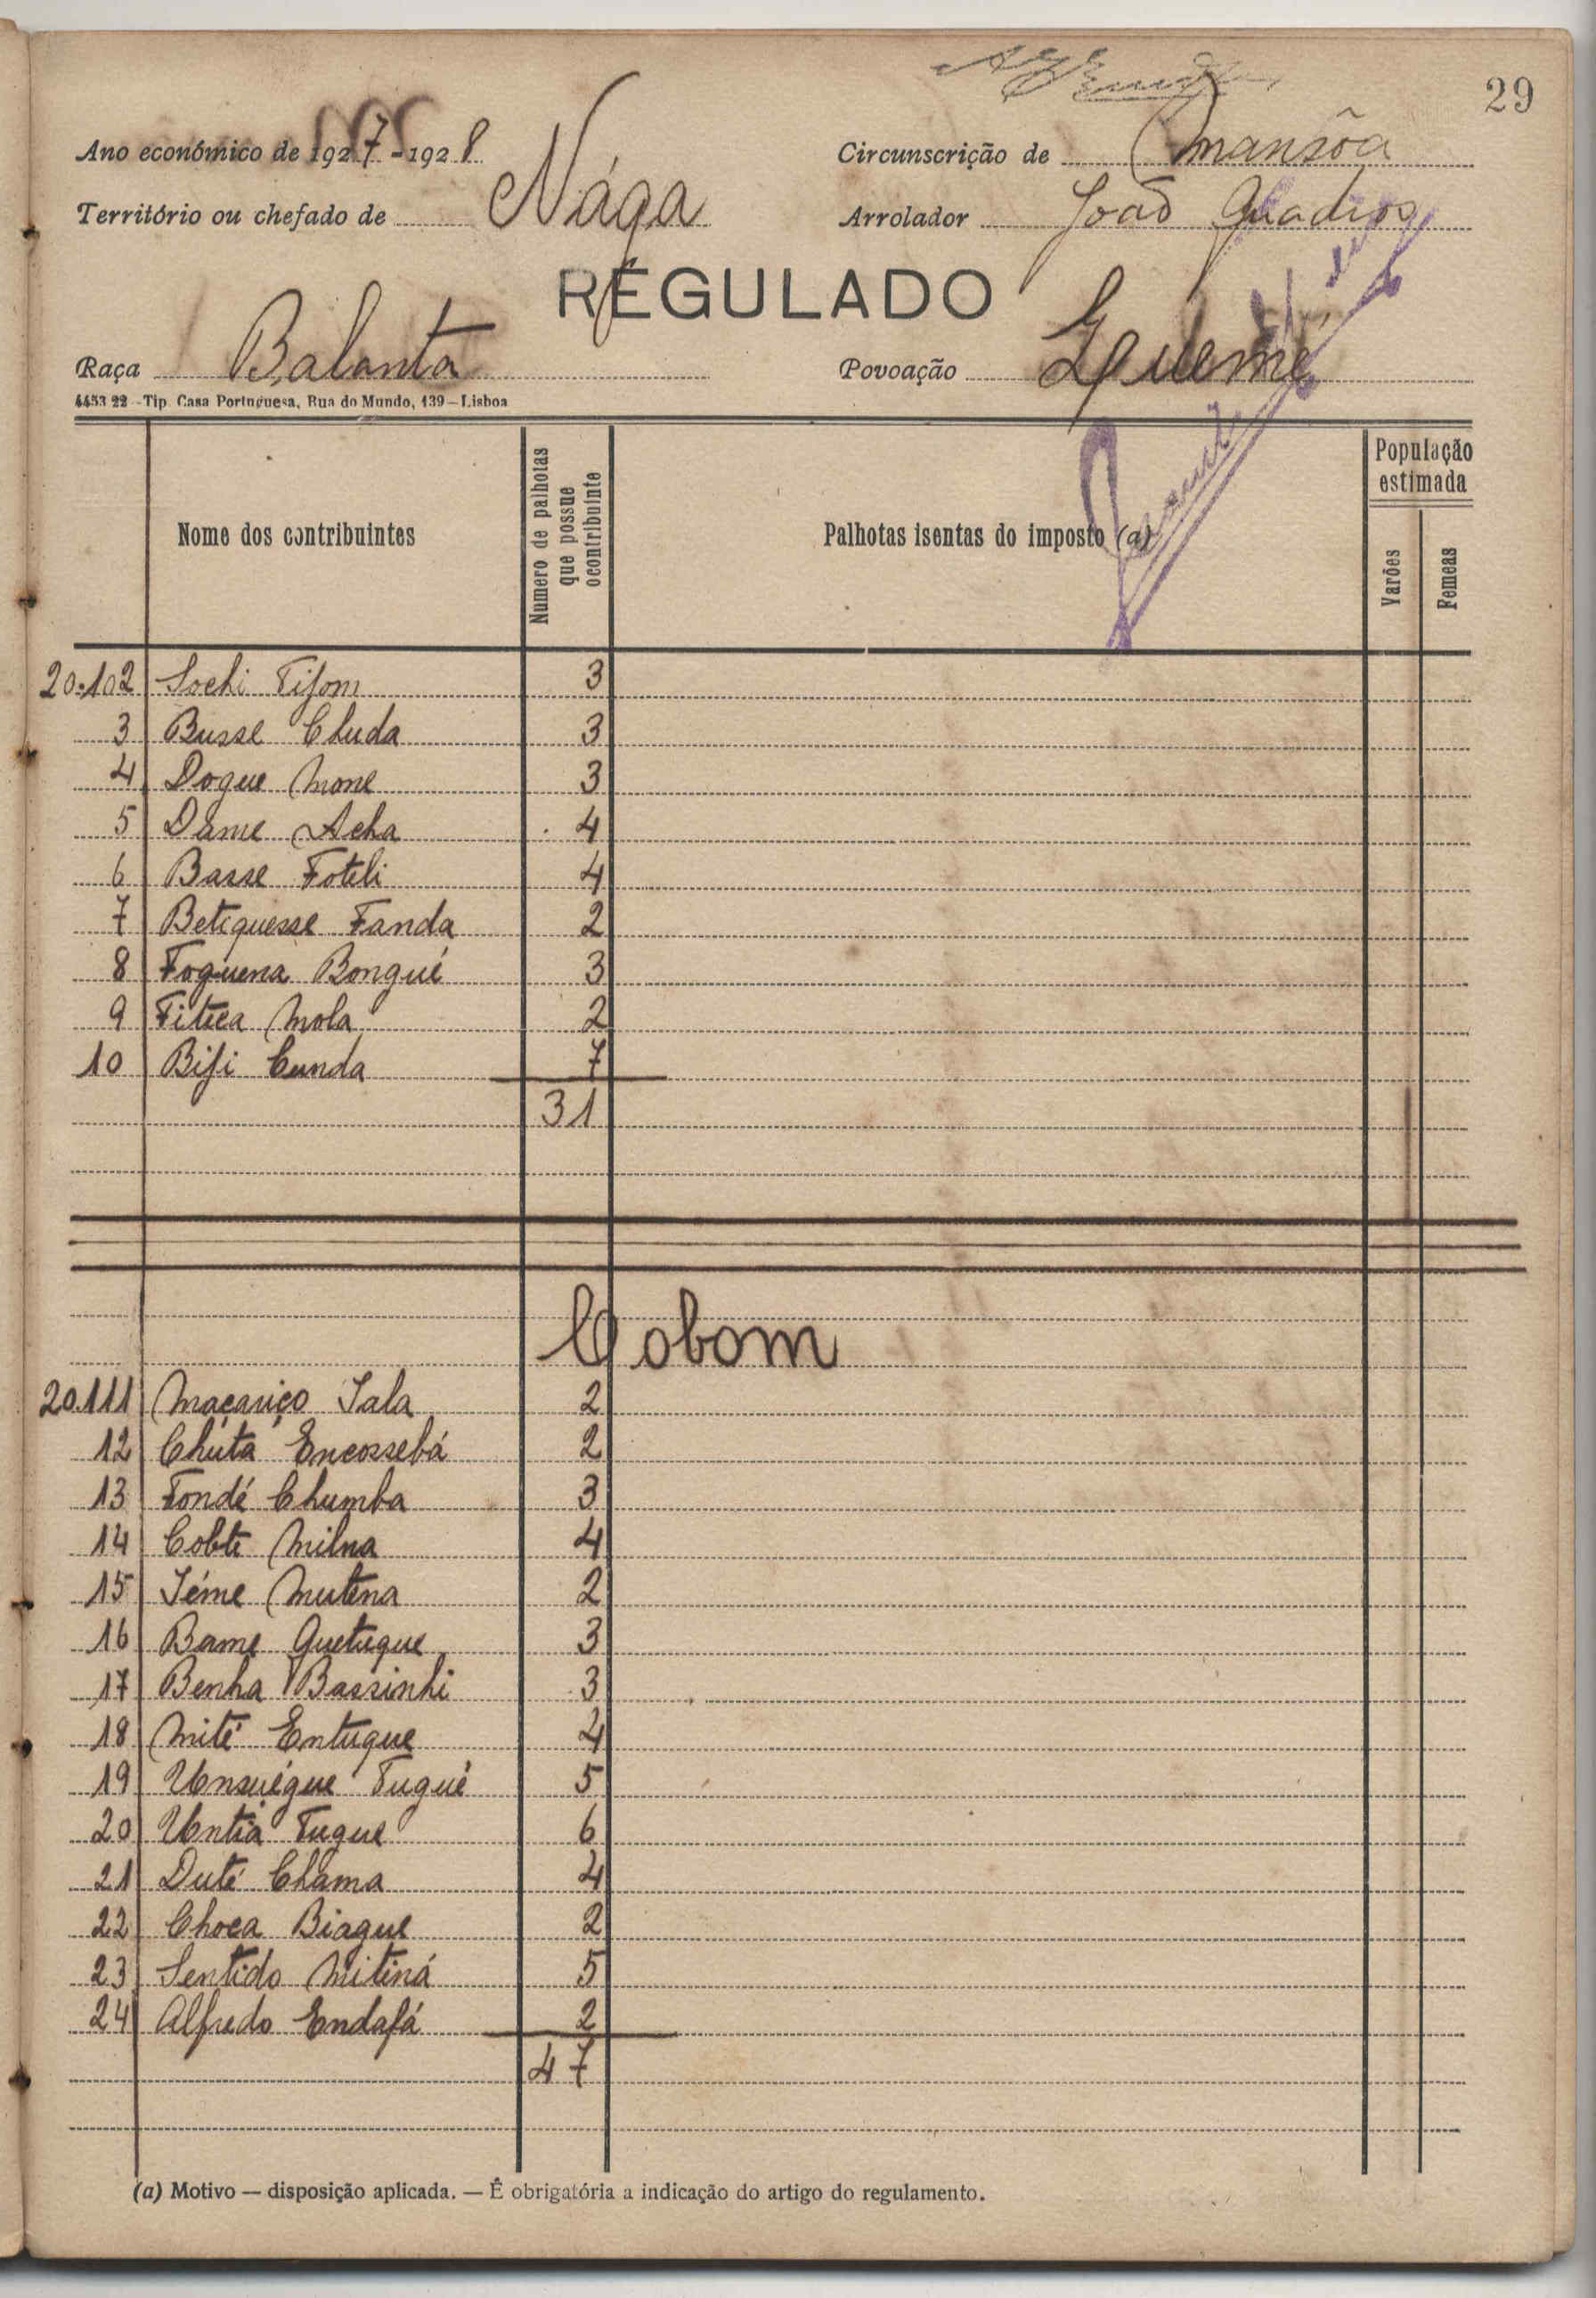 29
Ano económico de 1927-1928 Circunscrição de Mansôa
Território ou chefado de Nága Arrolador João Quadros
REGULADO
Raça Balanta Povoação
4453 22 - Tip. Casa Portuguesa, Rua do Mundo, 139 — Lisboa
Nome dos contribuintes Numero de palhotas que possue o contribuinte Palhotas isentas do imposto (a) População estimada Varões Femeas
20.102 Sochi Tifom 3
3 Busse Chuda 3
4 Dogue Mone 3
5 Dame Acha 4
6 Basse Foteli 4
7 Betequesse Fanda 2
8 Foquena Bongué 3
9 Fiteca Mola 2
10 Bifi Cunda 7
31
Cobom
20.111 Maçariço Iala 2
12 Chúta Encossebá 2
13 Fondé Chumba 3
14 Cobte Milna 4
15 Iéme Mutena 2
16 Bame Quetugue 3
17 Benha Bassinhi 3
18 Mité Entugue 4
19 Unsuégue Tugué 5
20 Untia Tugue 6
21 Duté Chama 4
22 Choca Biague 2
23 Sentido Mitiná 5
24 Alfredo Endafá 2
47
(a) Motivo — disposição aplicada. — É obrigatória a indicação do artigo do regulamento.